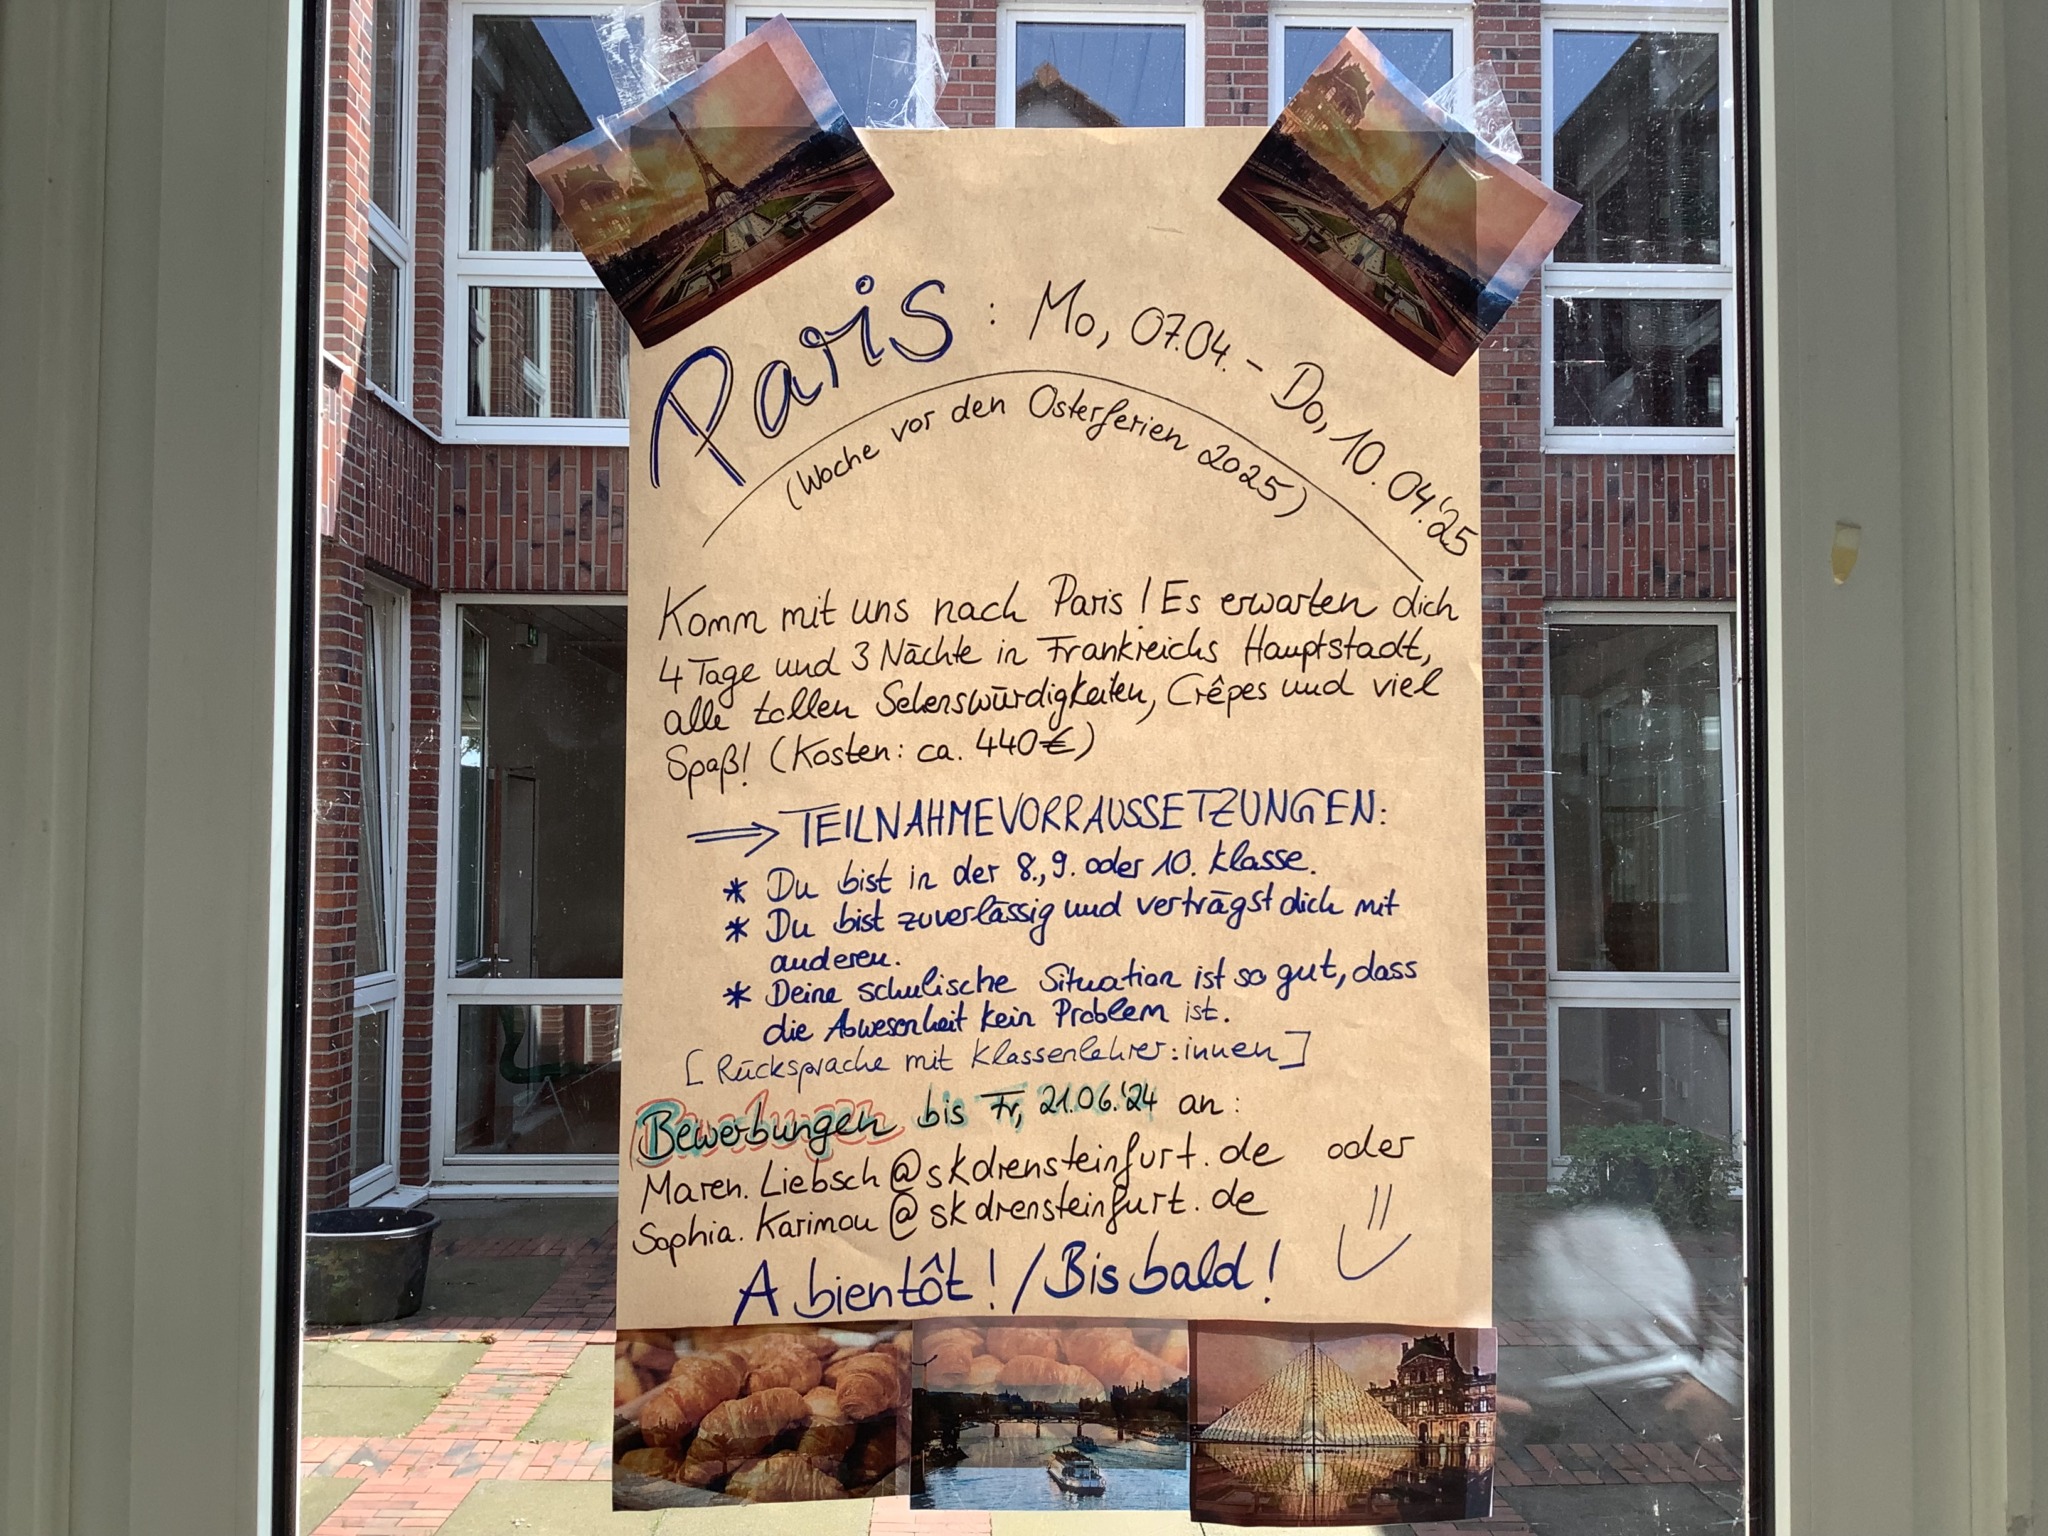 Paris : Mo, 07.04. - Do, 10.04.'25
(Woche vor den Osterferien 2025)
Komm mit uns nach Paris! Es erwarten dich
4 Tage und 3 Nächte in Frankreichs Hauptstadt,
alle tollen Sehenswürdigkeiten, Crêpes und viel
Spaß! (Kosten: ca. 440€)
⇒ TEILNAHMEVORRAUSSETZUNGEN:
* Du bist in der 8., 9. oder 10. Klasse.
* Du bist zuverlässig und verträgst dich mit
anderen.
* Deine schulische Situation ist so gut, dass
die Abwesenheit kein Problem ist.
[Rücksprache mit Klassenlehrer:innen]
Bewerbungen bis Fr, 21.06.'24 an:
Maren.Liebsch@skdrensteinfurt.de oder
Sophia.Karimou@skdrensteinfurt.de
A bientôt! / Bis bald!